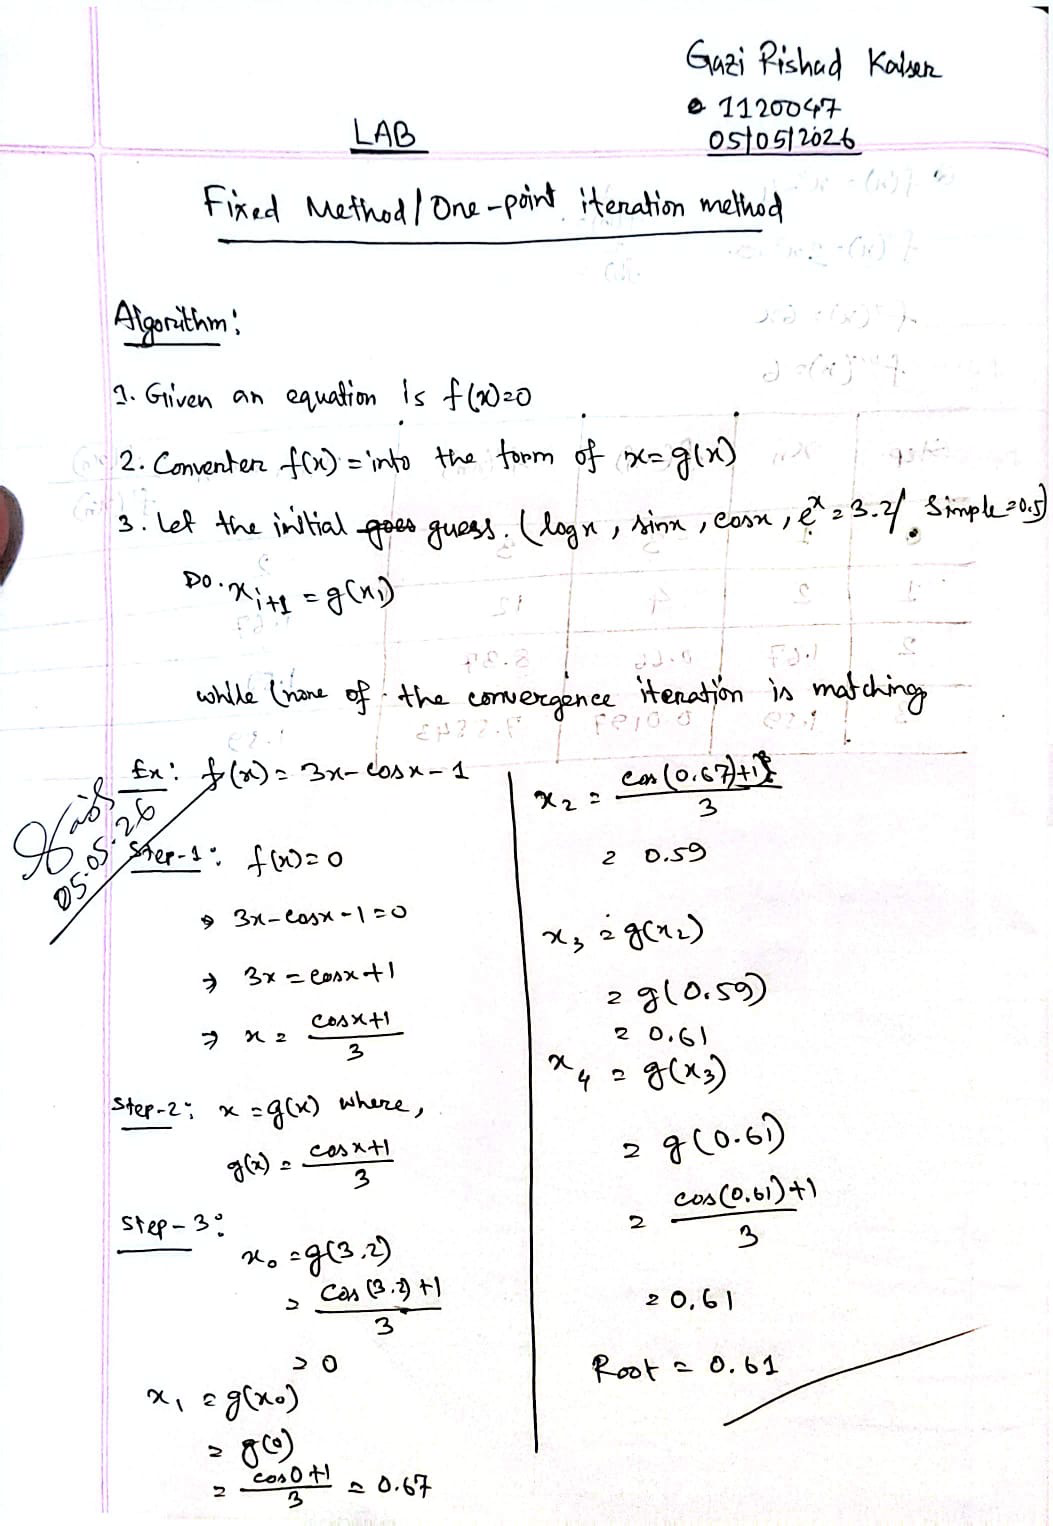 Gazi Rishad Kaiser
1120047
05/05/2026
LAB
Fixed Method/One-point iteration method
Algorithm:
1. Given an equation is f(x)=0
2. Converter f(x)= into the form of x=g(x)
3. Let the initial goes guess. (logx, sinx, cosx, e^x = 3.2/ Simple=0.5)
Do. x_{i+1} = g(x_i)
while (none of the convergence iteration is matching
Ex: f(x) = 3x-cosx-1
05.05.26
Step-1: f(x)=0
⇒ 3x-cosx-1=0
⇒ 3x = cosx+1
⇒ x = (cosx+1)/3
Step-2: x=g(x) where,
g(x) = (cosx+1)/3
Step-3:
x_0 = g(3.2)
= (cos(3.2)+1)/3
= 0
x_1 = g(x_0)
= g(0)
= (cos0+1)/3 = 0.67
x_2 = (cos(0.67)+1)/3
= 0.59
x_3 = g(x_2)
= g(0.59)
= 0.61
x_4 = g(x_3)
= g(0.61)
= (cos(0.61)+1)/3
= 0.61
Root = 0.61